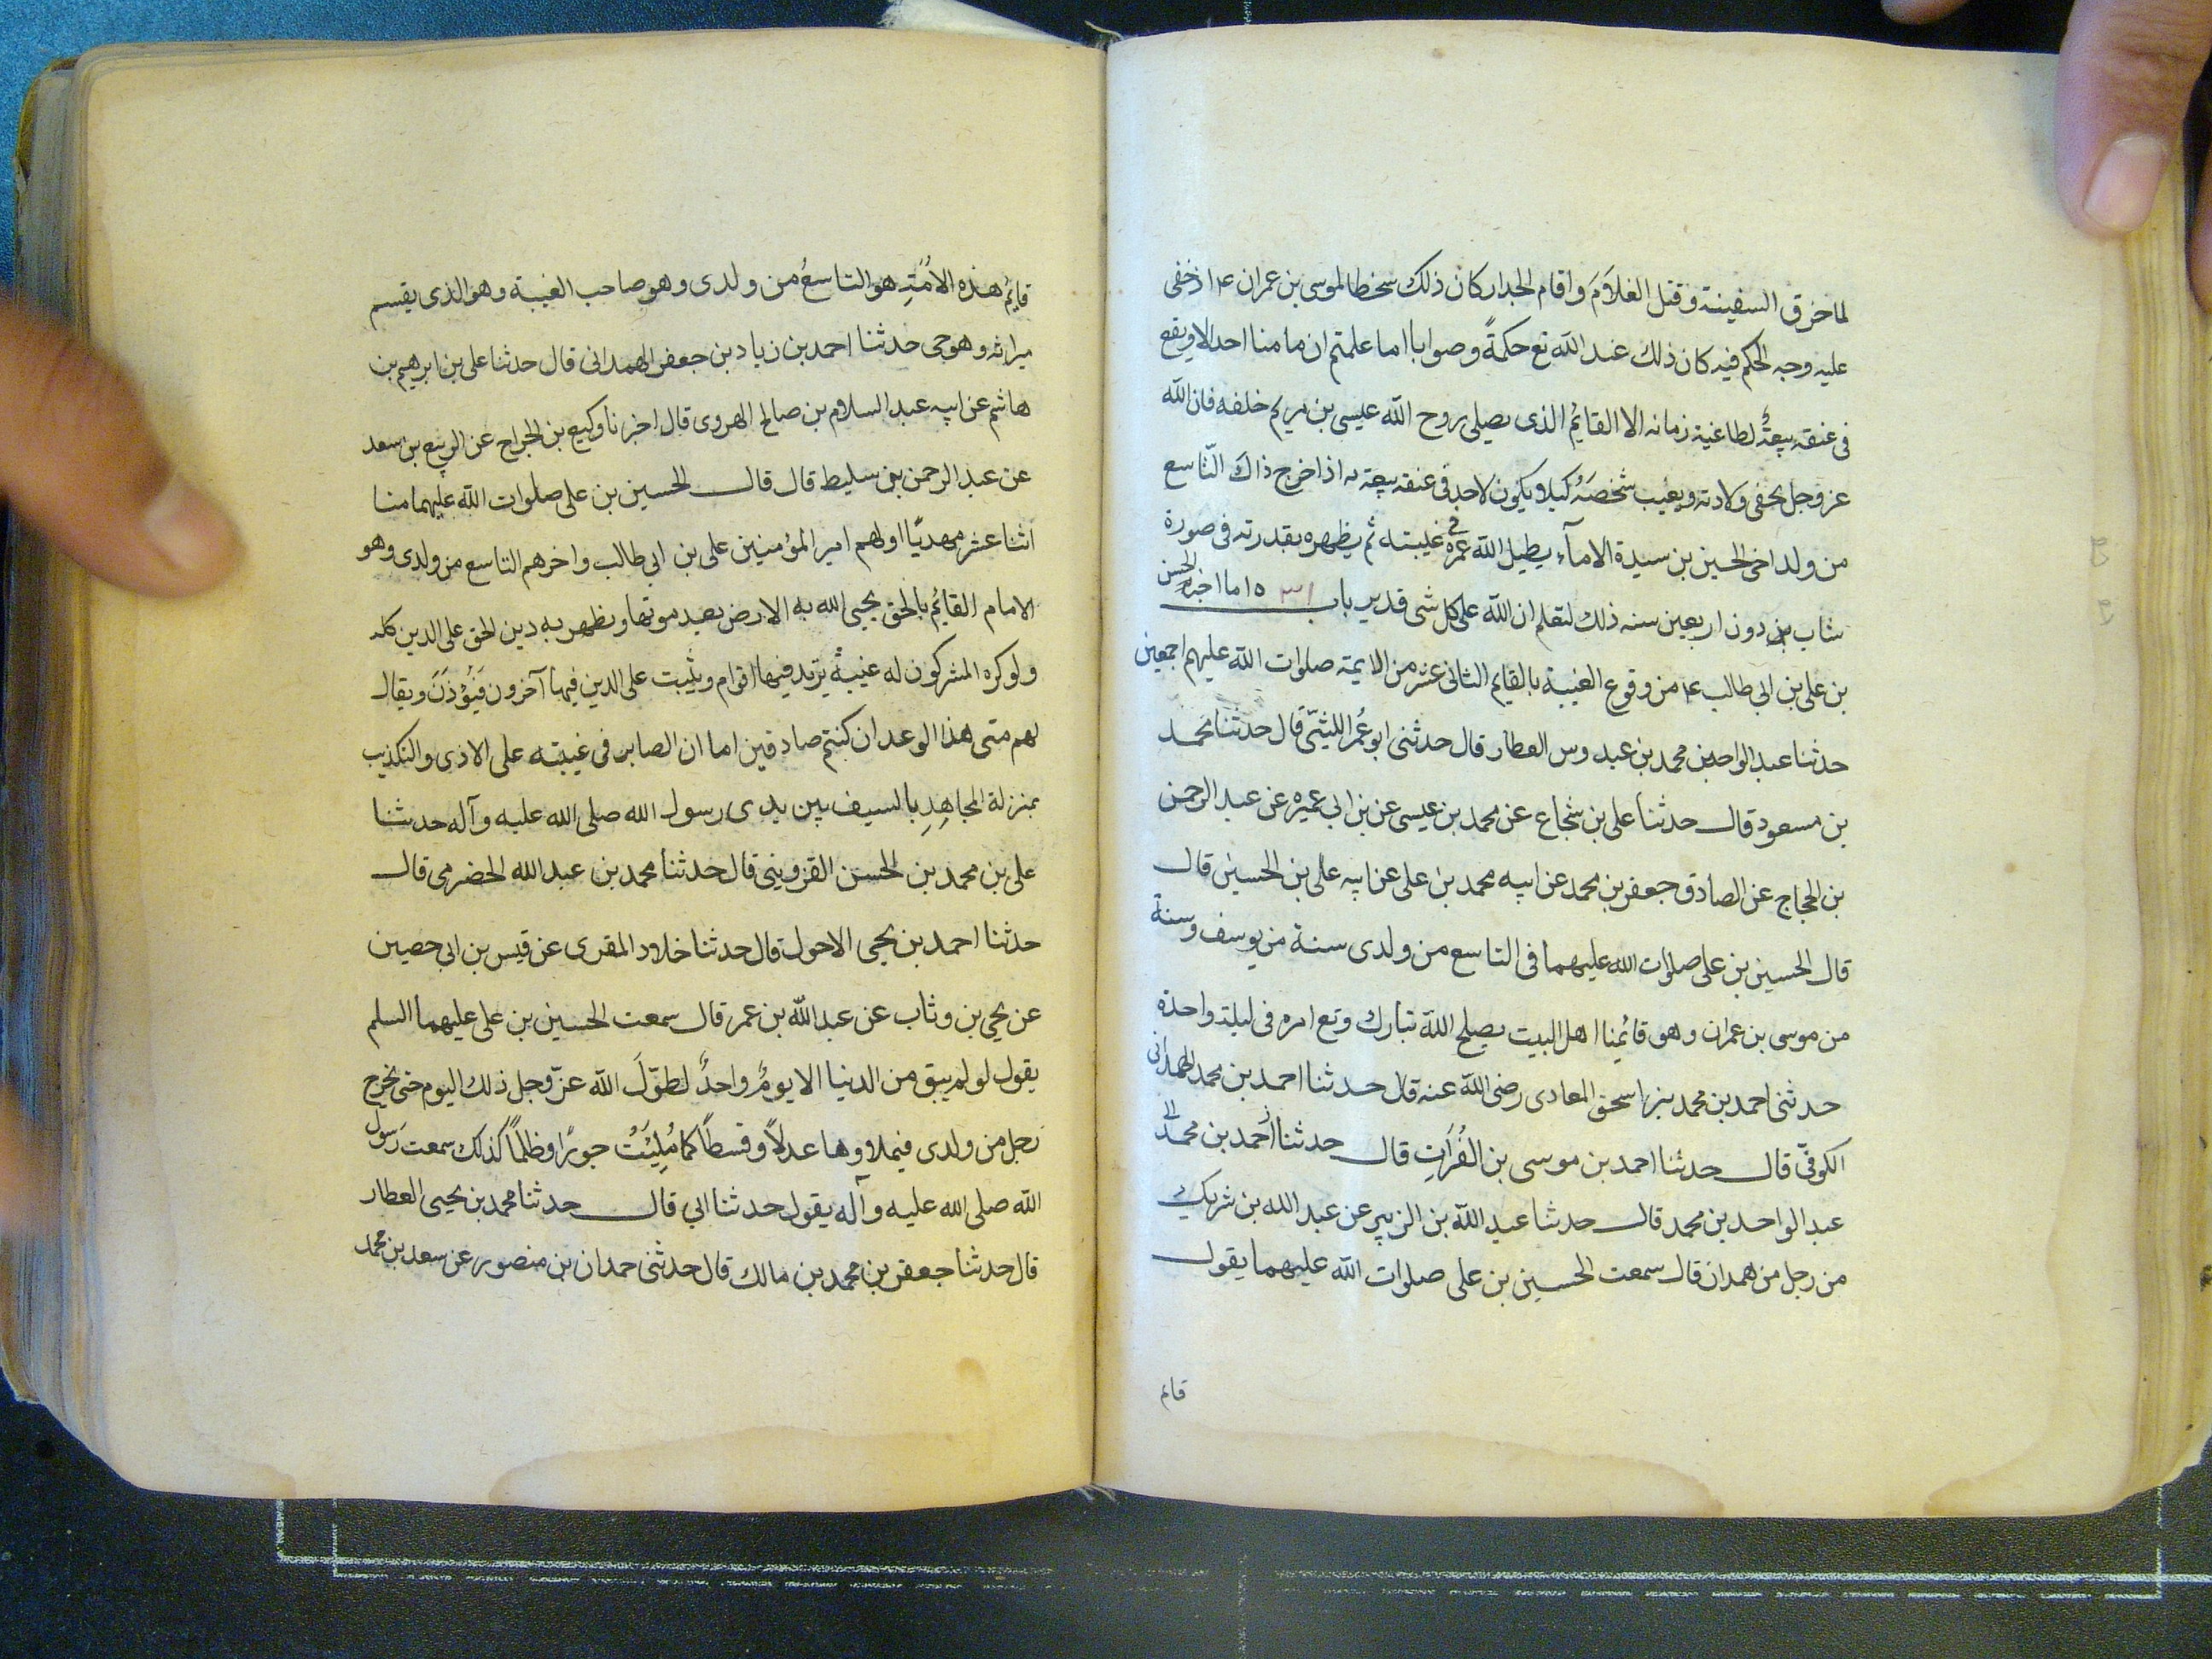 لما خرق السفينة وقتل الغلاَمَ واقام الجدار كان ذلك سخطا لموسى بن عمران ۴ اذ خفى
عليه وجه الحكم فيه كان ذلك عند الله تع حكمةً وصوابا اما علمتم ان ما منا احد الا ويقع
فى عنقه بيعةٌ لطاغية زمانه الا القايمُ الذى يصلى روح الله عيسى بن مريم خلفه فان الله
عز وجل يخفى ولادته ويغيب شخصَهُ كيلا يكون لاحد فى عنقه بيعة به اذا خرج ذاكَ التّاسع
من ولد اخى الحسين بن سيدة الامآء يطيل الله عمره فى غيبته ثم يظهره بقدرته فى صورة
شاب من دون اربعين سنه ذلك لتعلم ان الله على كل شى قدير باب ٣١ ٥ ما اخبر به الحسن
بن على بن ابى طالب ۴ من وقوع الغيبة بالقايم الثانى عشر من الايمة صلوات الله عليهم اجمعين
حدثنا عبد الواحد بن محمد بن عبدوس العطار قال حدثنى ابو عُمر الليثىّ قال حدثنا محمد
بن مسعود قال حدثنا على بن شجاع عن محمد بن عيسى عن بن ابى عميره عن عبد الرحمن
بن الحجاج عن الصادق جعفر بن محمد عن ابيه محمد بن على عن ابيه على بن الحسين قال
قال الحسين بن على صلوات الله عليهما فى التاسع من ولدى سنة من يوسف وسنة
من موسى بن عمران وهو قائمُنا اهل البيت يصلح الله تبارك وتع امره فى ليلة واحدة
حدثنى احمد بن محمد بن اسحق المعادى رضى الله عنه قال حدثنا احمد بن محمد الهمدانى
الكوفىّ قال حدثنا احمد بن موسى بن الفُرَاتِ قال حدثنا أحمد بن محمد قال
عبد الواحد بن محمد قال حدثنا عبد الله بن الزبير عن عبد الله بن شريك
من رجل من همدان قال سمعت الحسين بن على صلوات الله عليهما يقول
قايم
قايمُ هذه الاُمّتِهِ هو التاسعُ من ولدى وهو صاحب الغيبة وهو الذى يقسم
ميراثه وهو حى حدثنا احمد بن زياد بن جعفر الهمدانى قال حدثنا على بن ابرهيم بن
هاشم عن ابيه عبد السلام بن صالح الهروى قال اخبرنا وكيع بن الجراح عن الربيع بن سعد
عن عبد الرحمن بن سليط قال قال الحسين بن على صلوات الله عليهما منا
اثنا عشر مهديًا اولهم امير المؤمنين على بن ابي طالب واخرهم التاسع من ولدى وهو
الامام القايُم بالحق يحيى الله به الارض بعد موتها ويظهر به دين الحق على الدين كله
ولو كره المشركون له غيبةٌ يرتد فيها اقوام ويثبت على الدين فيها آخرون فَيُؤذَنَ ويقال
لهم متى هذا الوعد ان كنتم صادقين اما ان الصابر فى غيبته على الاذى والتكذيب
بمنزلة المجاهِدِ بالسيف بين يدى رسول الله صلى الله عليه وآله حدثنا
على بن محمد بن الحسن القزوينى قال حدثنا محمد بن عبد الله الحضرمى قال
حدثنا احمد بن يحيى الاحول قال حدثنا خلاد المقرى عن قيس بن ابى حصين
عن يحيى بن وثاب عن عبد الله بن عمر قال سمعت الحسين بن على عليهما السلم
يقول لو لم يبق من الدنيا الا يومٌ واحدٌ لطوّلَ الله عزّ وجل ذلك اليوم حتى يخرج
رجل من ولدى فيملاوها عدلاً وقسطاً كما مُلِئَتْ جورًا وظلمًا كذلك سمعت رَسول
الله صلى الله عليه وآله يقول حدثنا ابي قال حدثنا محمد بن يحيى العطار
قال حدثنا جعفر بن محمد بن مالك قال حدثنى حمدان بن منصور عن سعد بن محمد